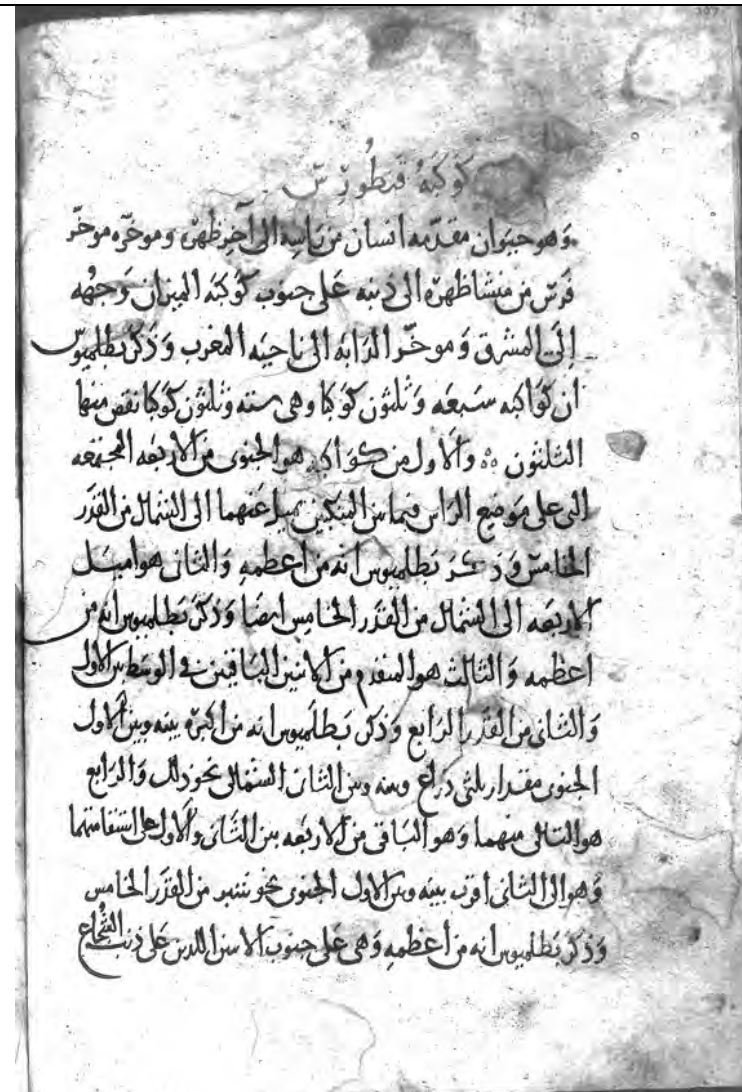 كوكبة قنطورس
وهو حيوان مقدمه انسان من راسه الى آخر ظهره وموخره موخر
فرس من منشا ظهره الى ذنبه على جنوب كوكبه الميزان وجهه
إلى المشرق وموخر الدابه الى ناحيه المغرب وذكر بطلميوس
ان كواكبه سبعه وثلثون كوكبا وهى سته وثلثون كوكبا نقص منها
الثلثون ٥٥ والاول من كواكبه هو الجنوبى من الاربعه المجتمعه
التى على موضع الراس فيما بين المنكبين يميل عنهما الى الشمال من القدر
الخامس وذكر بطلميوس انه من اعظمه والثانى هو اميل
الاربعه الى الشمال من القدر الخامس ايضا وذكر بطلميوس انه من
اعظمه والثالث هو المتقدم من الاثنين الباقيين فى الوسط بين الاول
والثانى من القدر الرابع وذكر بطلميوس انه من اكبره بينه وبين الاول
الجنوبى مقدار ثلثى ذراع وبينه وبين الثانى الشمالى نحو ذلك والرابع
هو التالى منهما وهو الباقى من الاربعه بين الثانى والاول على استقامتهما
وهو الى الثانى اقرب بينه وبين الاول الجنوبى نحو شبر من القدر الخامس
وذكر بطلميوس انه من اعظمه وهى على جنوب الاثنين اللذين على ذنب الشجاع